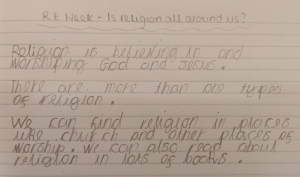 RE Week - Is religion all around us?
Religion is believing in and
worshiping God and Jesus.
There are more than are types
of religion.
We can find religion in places
like church and other places of
worship. We can also read about
religion in lots of books.